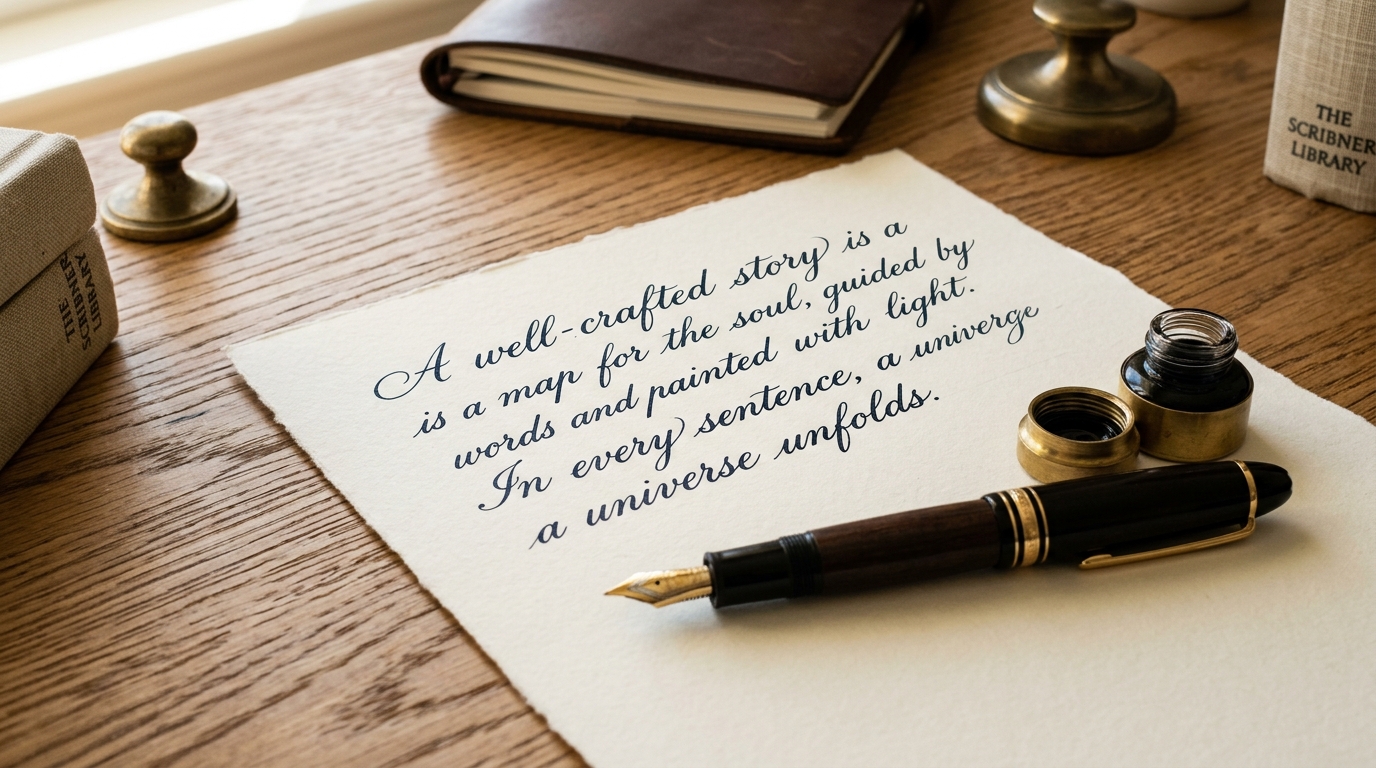 A well-crafted story is a
is a map for the soul, guided by
words and painted with light.
In every sentence, a univerge
a universe unfolds.
THE
SCRIBNER
LIBRARY
THE
SCRIBNER
LIBRARY